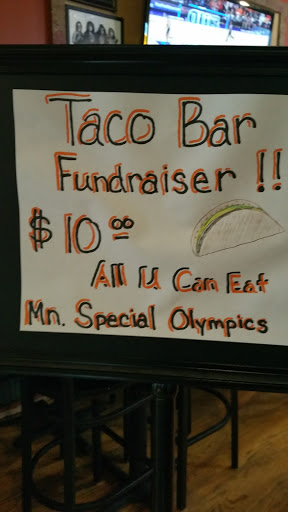 Taco Bar
Fundraiser !!
$10.00
All U Can Eat
Mn. Special Olympics